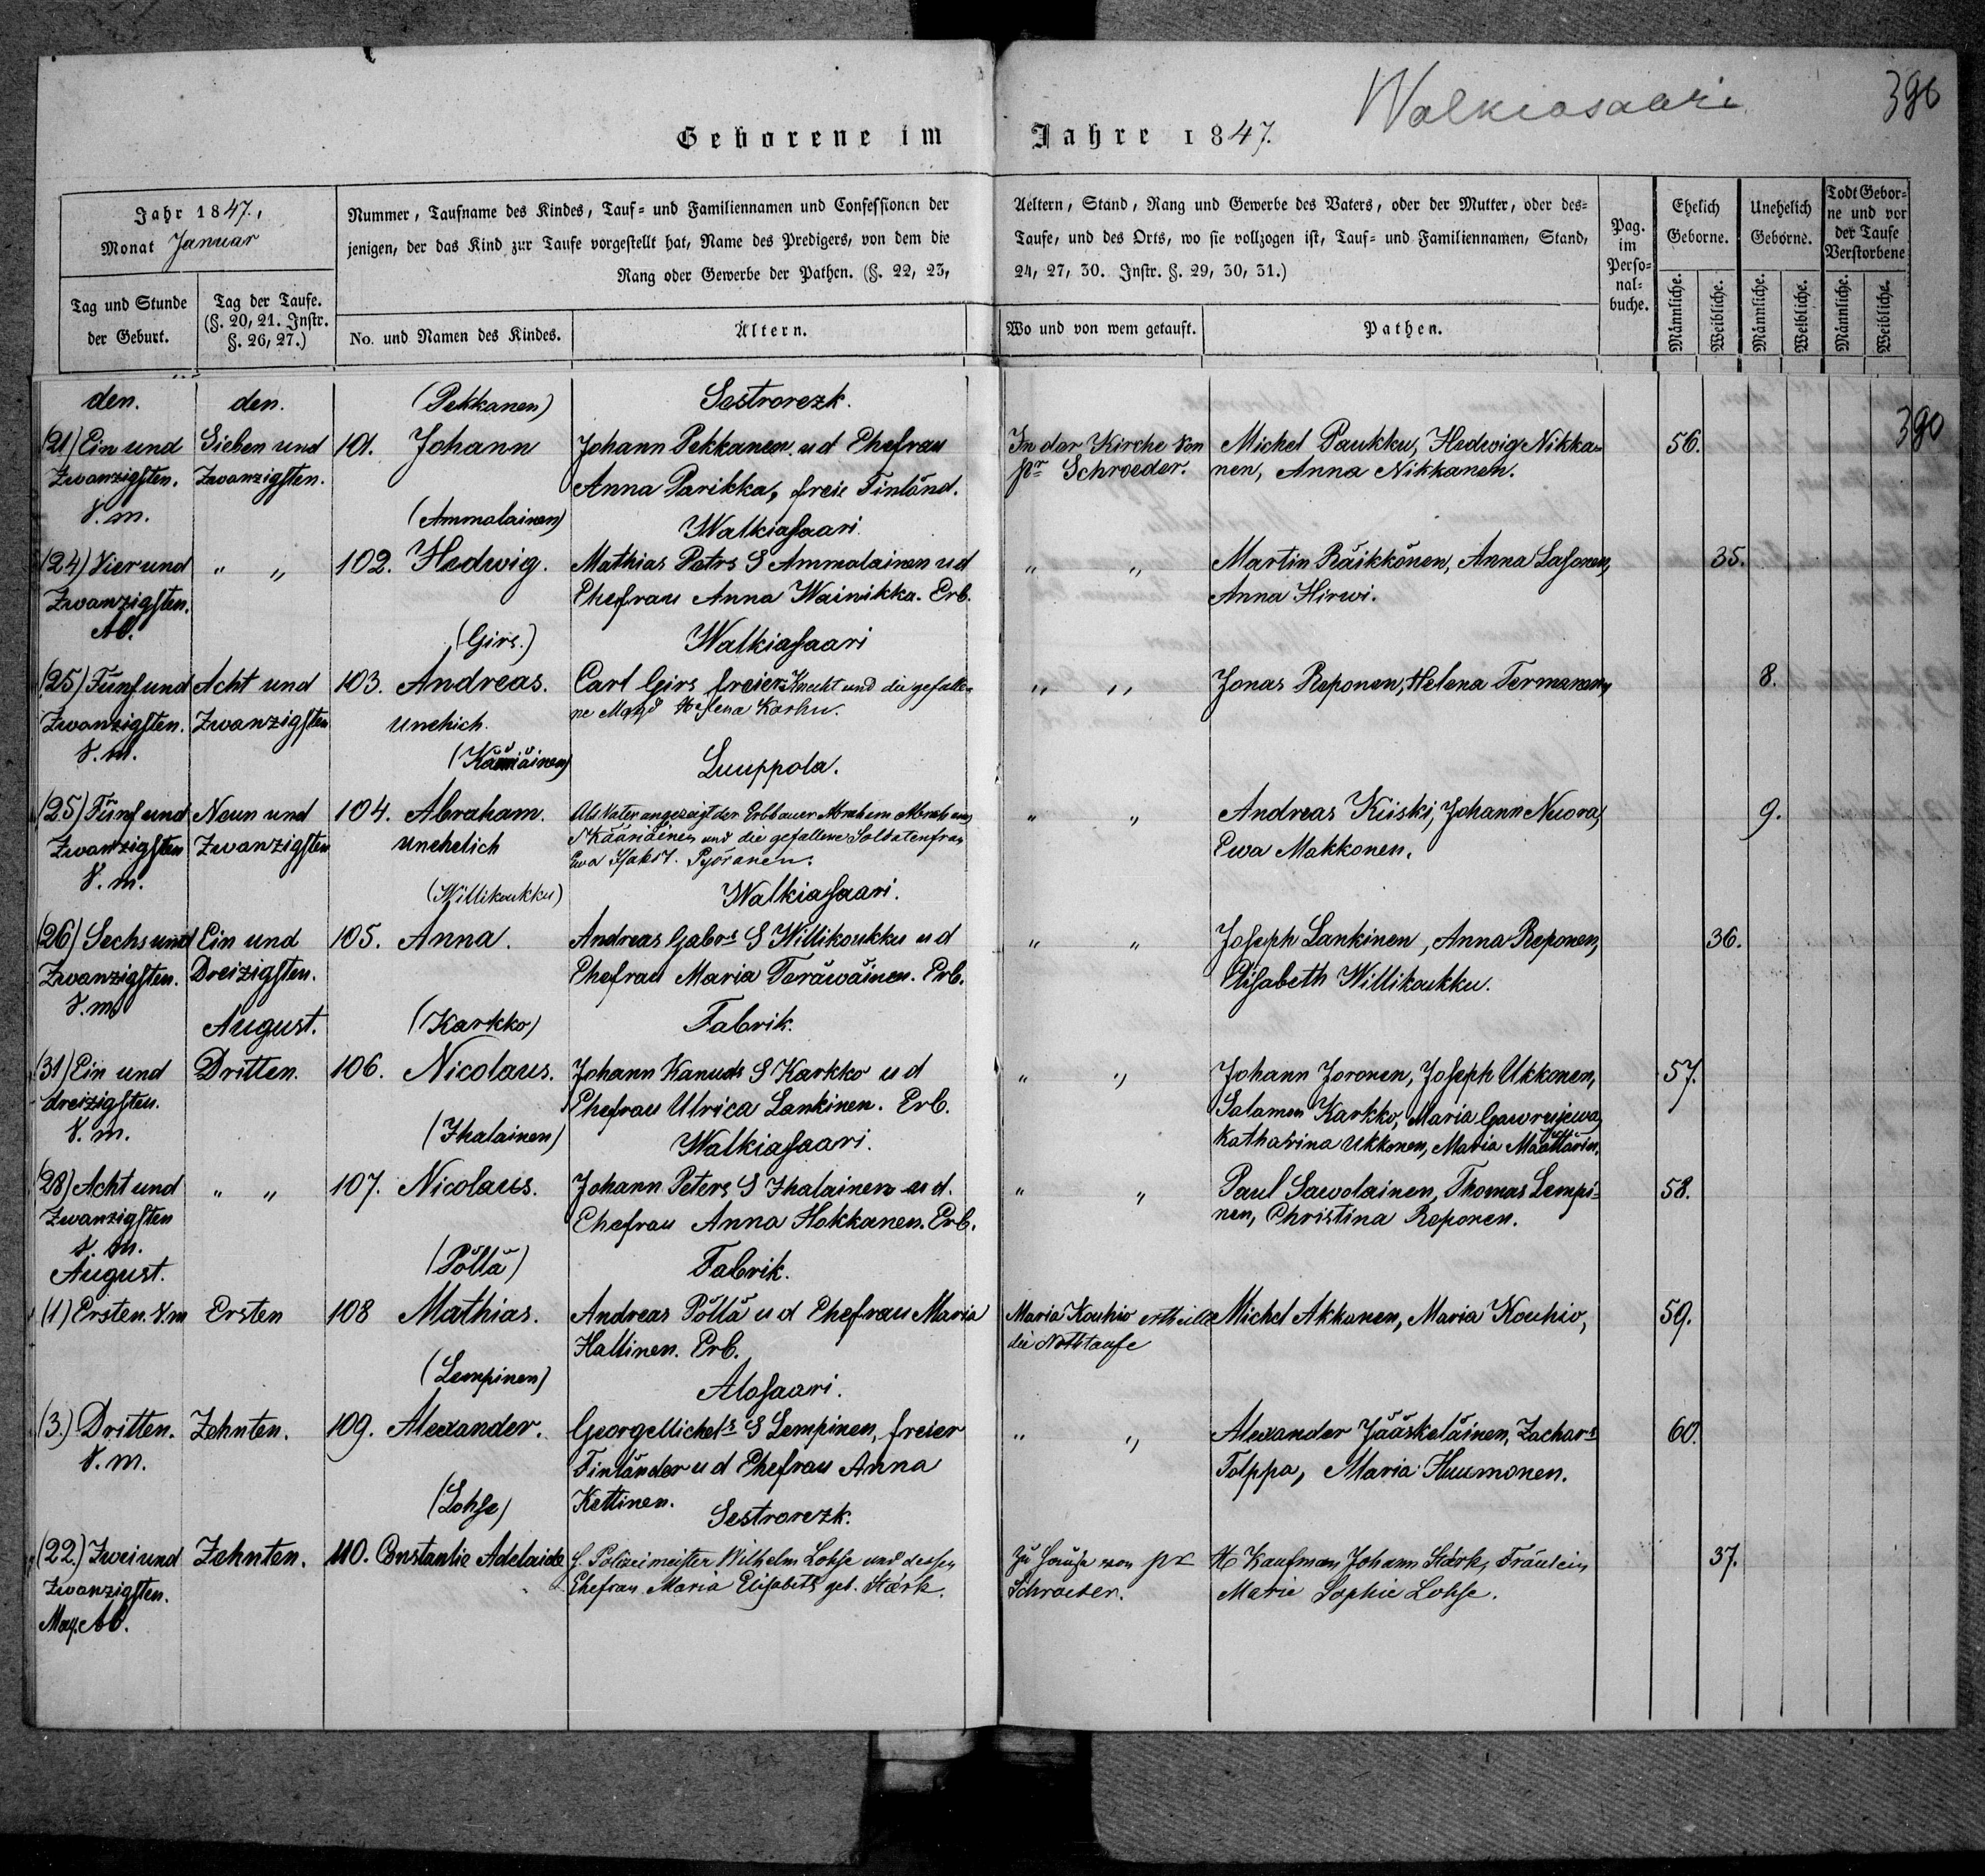 Walkiasaari
390
Geborene im Jahre 1847.
Jahr 1847.,
Monat Januar
Nummer, Taufname des Kindes, Tauf- und Familiennamen und Confessionen der Aeltern, Stand, Rang und Gewerbe des Vaters, oder der Mutter, oder des-
jenigen, der das Kind zur Taufe vorgestellt hat, Name des Predigers, von dem die Taufe, und des Orts, wo sie vollzogen ist, Tauf- und Familiennamen, Stand,
Rang oder Gewerbe der Pathen. (§. 22, 23, 24, 27, 30. Instr. §. 29, 30, 31.)
Pag.
im
Perso-
nal-
buche.
Ehelich
Geborne.
Unehelich
Geborne.
Todt Gebor-
ne und vor
der Taufe
Verstorbene
Tag und Stunde
der Geburt.
Tag der Taufe.
(§. 20, 21. Instr.
§. 26, 27.)
No. und Namen des Kindes.
Ältern.
Wo und von wem getauft.
Pathen.
Männliche.
Weibliche.
Männliche.
Weibliche.
Männliche.
Weibliche.
den.
den.
(Pekkanen)
Sestrorezk.
390
(21) Ein und
Zwanzigsten.
V. m.
Sieben und
Zwanzigsten.
101. Johann
Johann Pekkanen u d Ehefrau
Anna Parikka, freie Finländ.
In der Kirche von
Pr Schroeder.
Michel Paukku, Hedwig Nikka-
nen, Anna Nikkanen.
56.
(Ammolainen)
Walkiasaari.
(24) Vier und
Zwanzigsten.
Ab.
" "
102. Hedwig.
Mathias Petrs S Ammolainen u d
Ehefrau Anna Wainikka. Erb.
" "
Martin Räikkönen, Anna Lasonen,
Anna Hirwi.
35.
(Girs.)
Walkiasaari
(25) Fünf und
Zwanzigsten.
V. m.
Acht und
Zwanzigsten
103. Andreas.
unehich.
Carl Girs freier Knecht und die gefalle-
ne Magd Helena Karhu.
" "
Jonas Reponen, Helena Termanen,
8.
(Kääriäinen)
Luuppola.
(25) Fünf und
Zwanzigsten
V. m.
Neun und
Zwanzigsten
104. Abraham.
unehelich
Als Vater angezeigt der Erbbauer Abraham Abrahams
S Kääriäinen und die gefallene Soldatenfrau
Ewa Pyöränen.
" "
Andreas Kiiski, Johann Nuora,
Ewa Makkonen.
9.
(Willikoukku)
Walkiasaari.
(26) Sechs und
Zwanzigsten.
V. m.
Ein und
Dreizigsten.
105. Anna.
Andreas Gabrs S Willikoukku u d
Ehefrau Maria Teräwäinen. Erb.
" "
Joseph Lankinen, Anna Reponen,
Elisabeth Willikoukku.
36.
August.
(Karkko)
Fabrik.
(31) Ein und
dreizigsten.
V. m.
Dritten.
106. Nicolaus.
Johann Kanuds S Karkko u d
Ehefrau Ulrica Lankinen. Erb.
" "
Johann Joronen, Joseph Ukkonen,
Salamon Karkko, Maria Gawrujewa,
Katharina Ukkonen, Maria
57.
(Ihalainen)
Walkiasaari.
(28) Acht und
Zwanzigsten
V. m.
" "
107. Nicolaus.
Johann Peters S Ihalainen u d.
Ehefrau Anna Hokkanen. Erb.
" "
Paul Sawolainen, Thomas Lempi-
nen, Christina Reponen.
58.
August.
(Pöllä)
Fabrik.
(1) Ersten. V. m
Ersten
108 Mathias.
Andreas Pöllä u d Ehefrau Maria
Hallinen. Erb.
Maria Kouhio ertheilte
die Nothtaufe
Michel Akkanen, Maria Kouhio,
59.
(Lempinen)
Alosaari.
(3.) Dritten.
V. m.
Zehnten.
109. Alexander.
Georg Michels S Lempinen, freier
Finländer u d Ehefrau Anna
Kettinen.
" "
Alexander Jääskeläinen, Zachars
Tolppa, Maria Huumonen.
60.
(Lohse)
Sestrorezk.
(22.) Zwei und
Zwanzigsten.
May. Ab.
Zehnten.
110. Constantie Adelaide
H. Polizeimeister Wilhelm Lohse und dessen
Ehefrau Maria Elisabeth geb. Stärk.
Zu Hause von Pr
Schroeter.
H Kaufman Johann Stärk, Fräulein
Marie Sophie Lohse.
37.